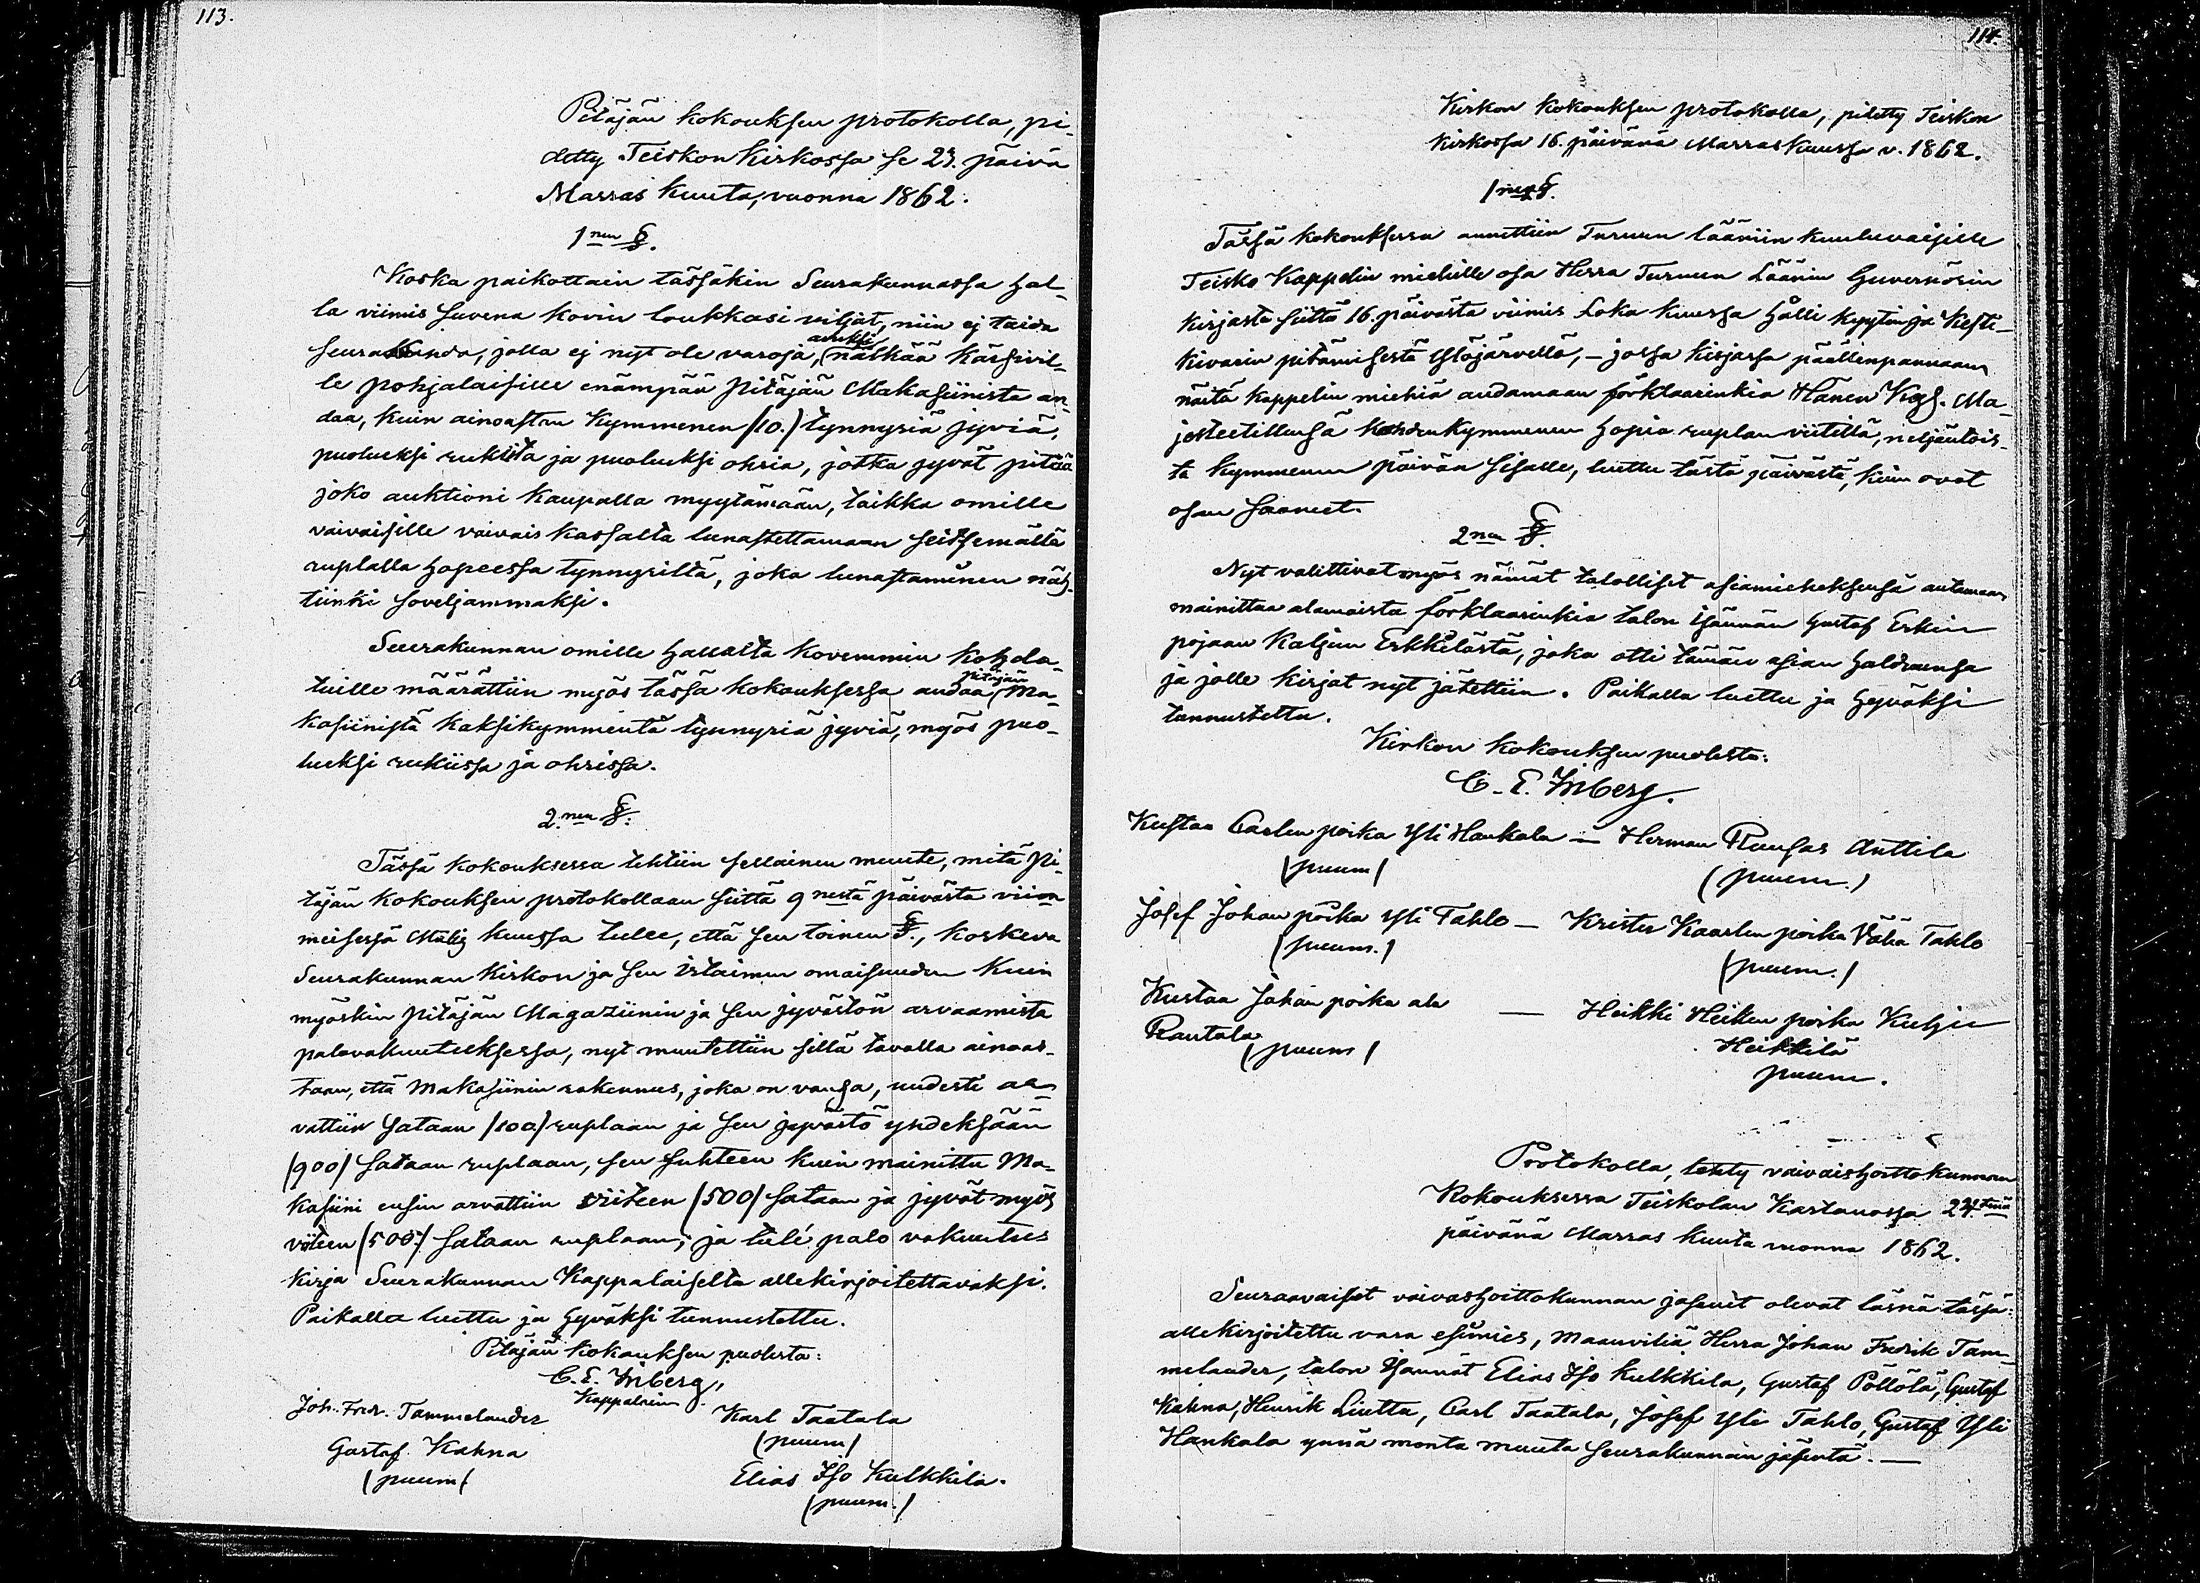 113.
Pitäjän kokouksen protokolla, pi-
detty Teiskon Kirkossa se 23. päivä
Marras kuuta, vuonna 1862.
1nen §.
Koska paikottain tässäkin Seurakunnassa hal-
la viimis suvena kovin loukkasi viljat, niin ej taida
seurakunda, jolla ej nyt ole varoja, nälkää kärsivil-
le pohjalaisille enämpää Pitäjän Makasiinista an-
daa, kuin ainoastan Kymmenen /10./ tynnyriä jyviä,
puoleeksi rukiita ja puoleeksi ohria, jotka jyvät pitää
joko auktioni kaupalla myytämään, taikka omille
vaivaisille vaivais kassalta lunastettamaan seitsemällä
ruplalla hopeessa tynnyriltä, joka lunastaminen näh-
tiinki soveljammaksi.
Seurakunnan omille hallalta kovemmin kohda-
tuille määrättiin myös tässä kokouksessa andaa pitäjän Ma-
kasiinistä kaksikymmentä tynnyriä jyviä, myös puo-
leeksi rukiissa ja ohrissa.
2.nen §.
Tässä kokouksessa tehtiin sellainen muute, mitä Pi-
täjän kokouksen protokollaan siittä 9 nestä päivästä viim
meisessä Mäliz kuussa tulee, että sen toinen §., koskeva
Seurakunnan Kirkon ja sen irtaimen omaisuuden kuin
myöskin pitäjän Magaziinin ja sen jyvästön arvaamista
palovakuutuksessa, nyt muutettiin sillä tavalla ainoas-
taan, että Makasiinin rakennus, joka on vanha, uudesti ar-
vattiin Sataan /100/ ruplaan ja sen jyvästö yhdeksään
/900/ Sataan ruplaan, sen suhteen kuin mainittu Ma-
kasiini ensin arvattiin viiteen /500/ sataan ja jyvät myös
viiteen /500/ sataan ruplaan; ja tulé palo vakuutus
kirja Seurakunnan Kappalaiselta allekirjoitettavaksi.
Paikalla luettu ja hyväksi tunnustettu.
Pitäjän kokouksen puolesta:
C. E. Inberg,
Kappalainen.
Joh. Fredr. Tammelander
Karl Taatala
(puum)
Gustaf Kahna
(puum)
Elias Iso Kulkkila.
(puum.)
114.
Kirkon kokouksen protokolla, pidetty Teiskon
kirkossa 16. päivänä Marraskuussa v. 1862.
1nen §.
Tässä kokouksessa annettiin Turuun lääniin kuuluvaisille
Teisko Kappelin miehille osa Herra Turuun Läänin Guvernörin
kirjasta siittä 16. päivästä viimis Loka kuussa hålli kyytin ja Kesti-
kivarin pitämisestä Ylöjärvellä, - jossa kirjassa päällenpannaan
näitä kappelin miehiä andamaan förklaarinkia Hänen Keis. Ma-
jesteetillensä kahdenkymmenen hopia ruplan viitillä, neljäntois-
ta kymmenen päivän sisälle, luettu tästä päivästä, kuin ovat
osan saaneet.
2nen §.
Nyt valittivat myös nämät talolliset asiamieheksensä antamaan
mainittua alamaista förklaarinkia talon isännän Gustaf Erkin
pojaan Kaljun Erkkilästä, joka otti tämän asian haldzuunsa
ja jolle kirjat nyt jätettiin. Paikalla luettu ja hyväksi
tunnustettu.
Kirkon kokouksen puolesta:
C. E. Inberg.
Kustaa Carlen poika Yli Hankala — Herman Ruuhas Anttila
(puum) (puum.)
Josef Johan poika Yli Tahlo — Krister Kaarlen poika Vähä Tahlo
(puum.) (puum.)
Kustaa Johan poika ala
Rautala — Heikki Heiken poika Kulju
Heikkilä
(puum) puum.
Protokolla, tehty vaivaishoittokunnan
Kokouksessa Teiskolan Kartanossa 24.tenä
päivänä Marras kuuta vuonna 1862.
Seuraavaiset vaivashoittokunnan jäsenet olevat läsnä tässä:
allekirjoitettu vara esimies, maanviliä Herra Johan Fredrik Tam-
melander, talon Isännät Elias Iso Kulkkila, Gustaf Pöllölä, Gustaf
Kahna, Henrik Liutta, Carl Taatala, Josef Yli Tahlo, Gustaf Yli
Hankala ynnä monta muuta seurakunnan jäsentä. —